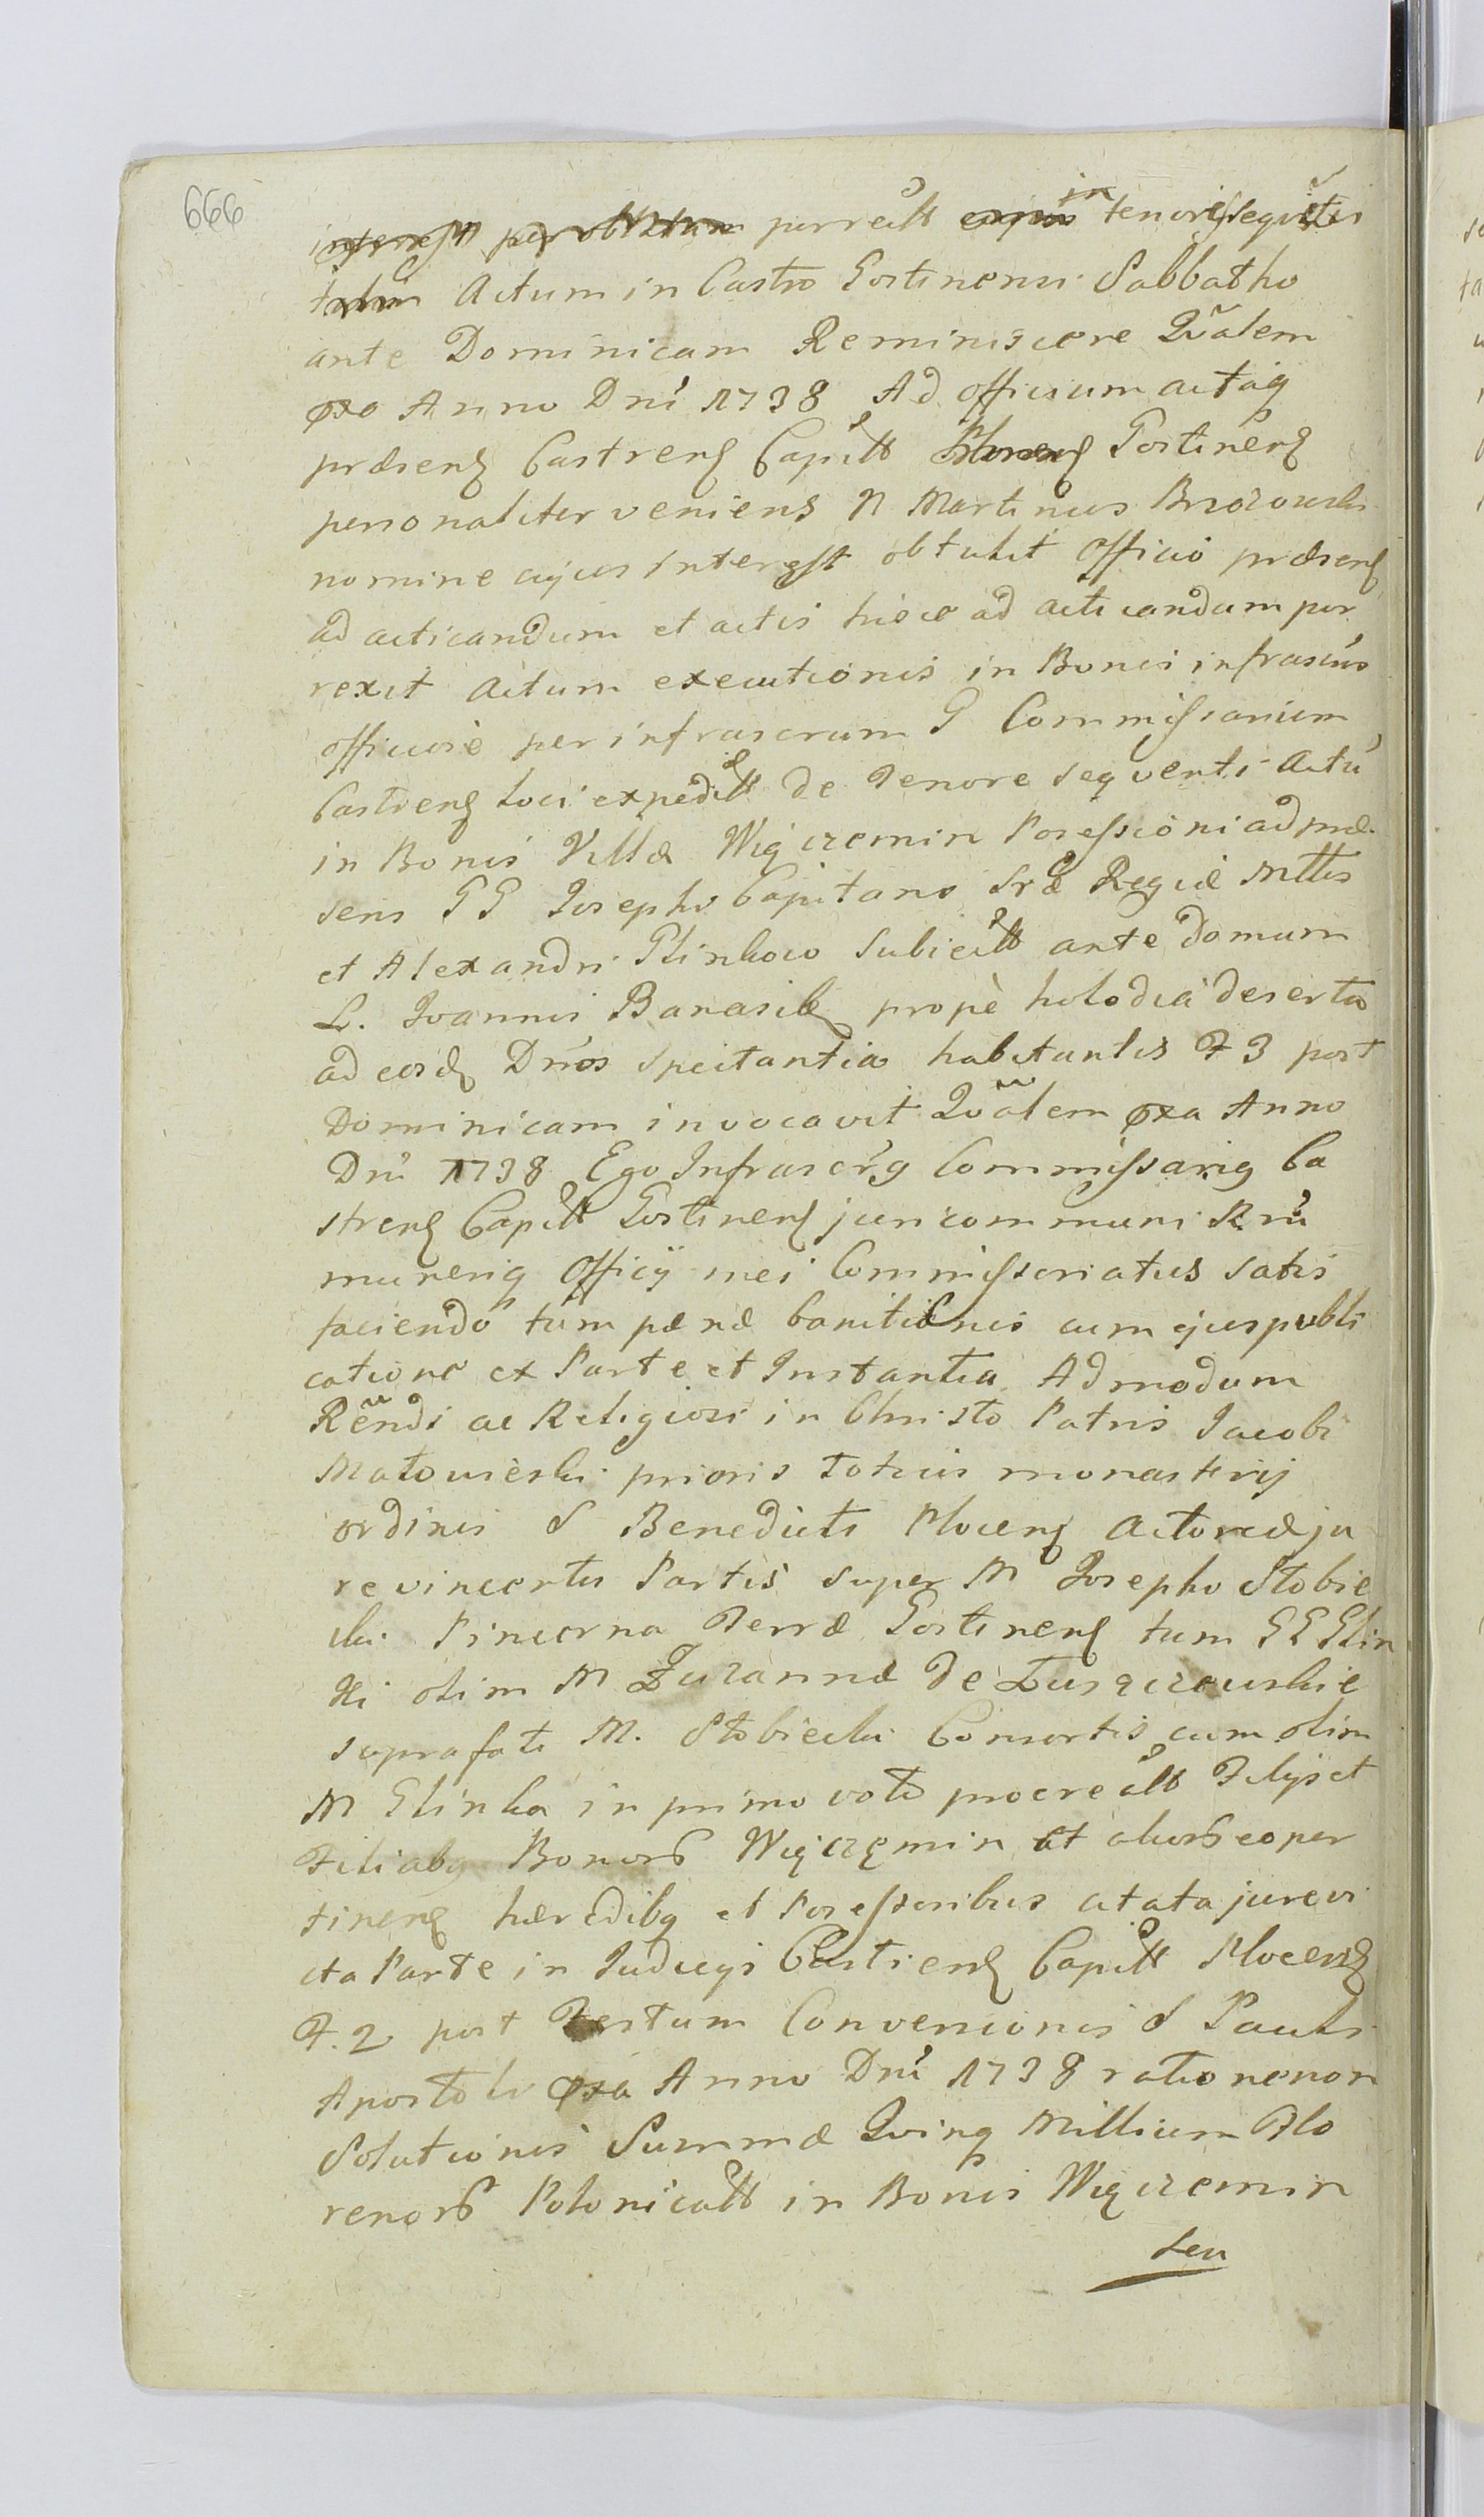 666
interest per oblatam porrectt cujus in tenore sequētis
talis Actum in Castro Gostinensi Sabbatho
ante Dominicam Reminiscere Qũalem
pxo Anno Dni 1738 Ad officium actaq
præsenꝭ Castrenꝭ Capitt Plocenꝭ Gostinenꝭ
personaliter veniens N Martinus Brzozowski
nomine cujus interest obtulit officio præsenꝭ
ad acticandum et actis hisce ad acticandum por
rexit Actum executionis in Bonis infrascris
officiose per infrascrum G Commissarium
Castrenꝭ loci expeditt de tenore sequenti Actũ
in Bonis Villæ Wiączemin Possessioni ad præ
sens GG Josepho Capitano Sræ Regiæ Mttis
et Alexandri Glinkow Subiectt ante domum
L. Joannis Banasik prope holodia deserta
ad eosdꝭ Dños spectantia habitantis F 3 post
Dominicam invocavit Qũalem pxa Anno
Dni 1738 Ego Infrascrꝰ Commissariꝰ Ca
strenꝭ Capitt Gostinenꝭ juri communi Rñi
muneriq Officij mei Commissoriatus satis
faciendo tum pænæ banitionis cum ejus publi
catione ex Parte et Instantia Admodum
Rẽndi ac Religiosi in Christo Patris Jacobi
Matowieski prioris totius monasterij
ordinis S Benedicti Plocenꝭ Actoreæ ju
re vincentis Partis super M Josepho Stobie
cki Pincerna Terræ Gostinenꝭ tum GG Glin
ki olim M Zuzannæ de Luszczewskie
suprafati M. Stobiecki Consortis cum olim
M Glinka in primo voto procreatt Filijs et
Filiabꝰ Bonorꝭ Wiączemin et aliorꝭ eo per
tinenꝭ hæredibꝰ et Possessoribus citata jurevi
cta Parte in Judicijs Castrenꝭ Capitt Plocenꝭ
F. 2 post Festum Conversionis S Pauli
Apostoli pxa Anno Dni 1738 ratione non
Solutionis Summæ Quinq Millium Flo
renorꝭ Polonicatt in Bonis Wiączemin
seu